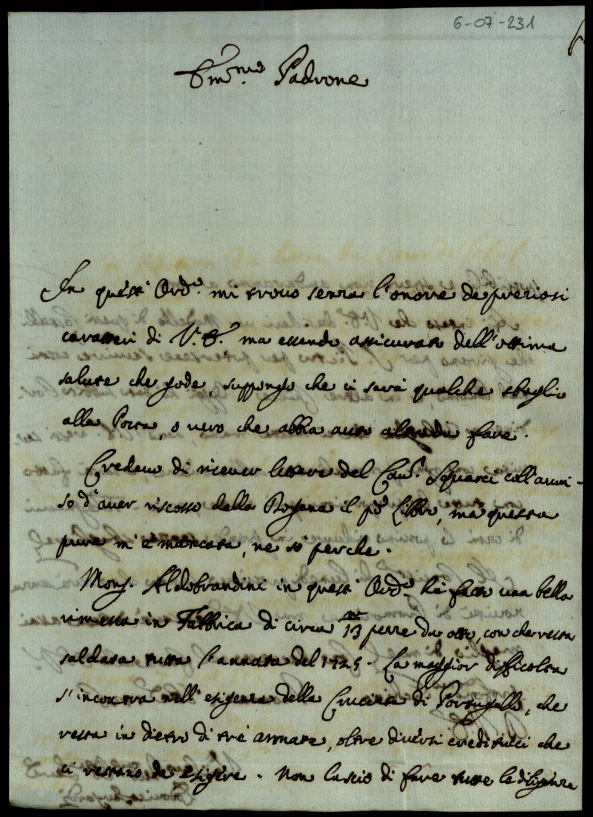 6-07-231
Em.mo Padrone
In questi Ord.i mi trovo senza l'onore de preziosi
caratteri di V. E. ma essendo assicurato dell'ottima
salute che gode, suppongo che ci sarà qualche sbaglio
alla Posta, o vero che abbia auto da fare.
Credevo di ricever lettere del Cav.e Squarci coll'avvi-
so d'aver riscosso della il p.o Libbro, ma questa
pure m'è mancata, ne so perche.
Mons. Aldobrandini in questi Ord.i ha fatto una bella
rimessa in Fabbrica di circa 13 m/ pezze da otto, con che resta
saldata tutta l'annata del 1725. La maggior difficoltà
s'incontra nell'esigenza della Cruciata di Portugallo, che
resta in dietro di tre annate, oltre diversi creditucci che
ci restano de esigere. Non lascio di fare tutte le diligenze